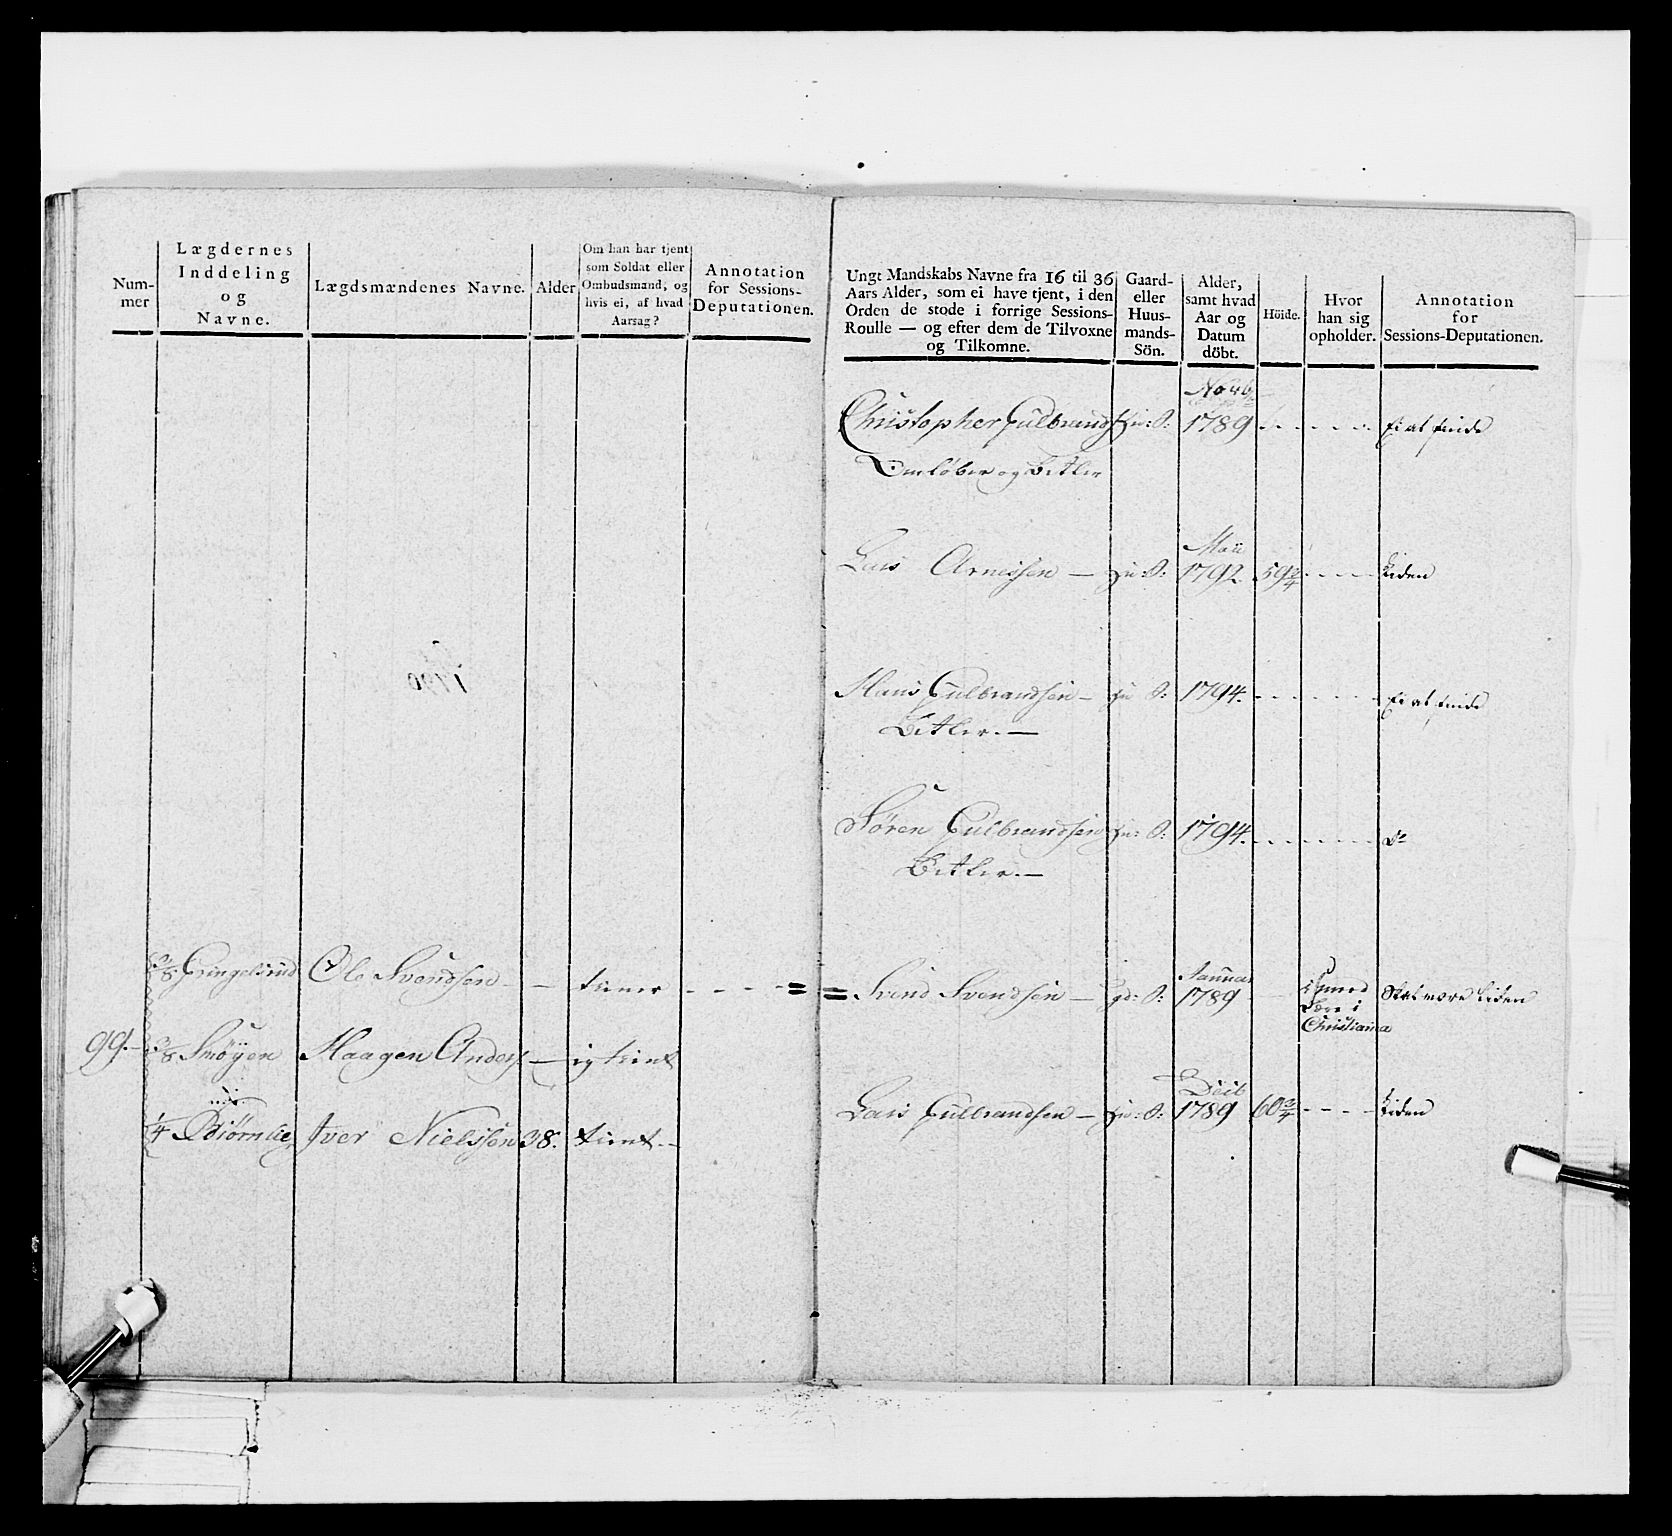 Num-
mer
Lægdernes
Inddeling
og
Navne.
Lægdsmændenes Navne.
Alder
Om han har tjent
som Soldat eller
Ombudsmand, og
hvis ei, af hvad
Aarsag?
Annotation
for Sessions-
Deputationen.
3/8 Gringelsrud Ole Svendsen - - tiener - - - - =
99. - 3/8 Smöyen Haagen Anders. - ig tient
1/4 Biørnlie Iver Nielssen 38. tient. -
Ungt Mandskabs Navne fra 16 til 36
Aars Alder, som ei have tjent, i den
Orden de stode i forrige Sessions-
Roulle — og efter dem de Tilvoxne
og Tilkomne.
Gaard-
eller
Huus-
mands-
Sön.
Alder,
samt hvad
Aar og
Datum
döbt.
Höide.
Hvor
han sig
opholder.
Annotation
for
Sessions-Deputationen.
Novb
Christopher Gulbrands Hu: S: 1789 - - - - - - Ei at finde
Omløber og Betler
Maii
Lars Arnessen — Hu: S: 1792 59 3/4 - - - - liden
Hans Gulbrandsen — Hu S: 1794. - - - - - - Ei at finde
Betler. —
Søren Gulbrandsen Hu: S: 1794. - - - - - - do
Betler. —
Januar
= Svend Svendsen — gd: S: 1789 - Skal være liden
Lære i
Christiania
Decb
Lars Gulbrandsen — Hu: S: 1789 60 3/4 - - - - liden